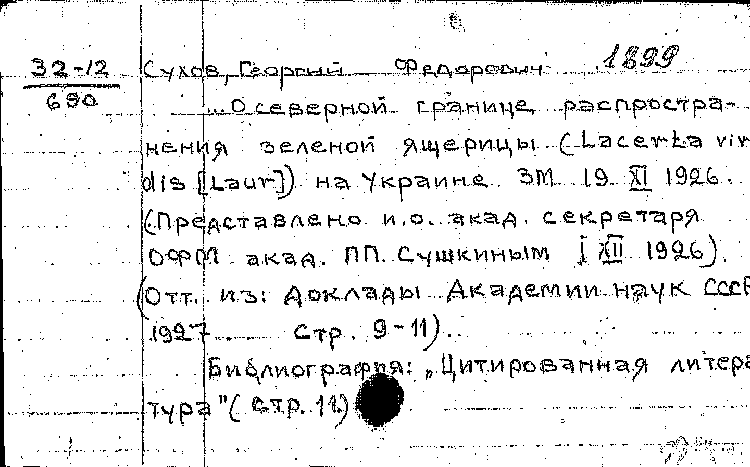 1899
32-12 Сухов, Георгий Федорович
690
...О северной границе распростра-
нения зеленой ящерицы (Lacerta vir
dis [Laur]) на Украине. ЗМ 19 XI 1926.
(Представлено и.о. акад. секретаря
ОФМ акад. П.П. Сушкиным I XII 1926).
(Отт. из: Доклады Академии наук СССР
1927 стр. 9-11).
Библиография: „Цитированная литера
тура" (стр. 11)